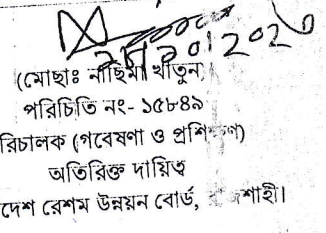 (মোছাঃ নাছিমা খাতুন)
পরিচিতি নং- ১৫৮৪৯
রিচালক (গবেষণা ও প্রশিক্ষণ)
অতিরিক্ত দায়িত্ব
দেশ রেশম উন্নয়ন বোর্ড, জশাহী।